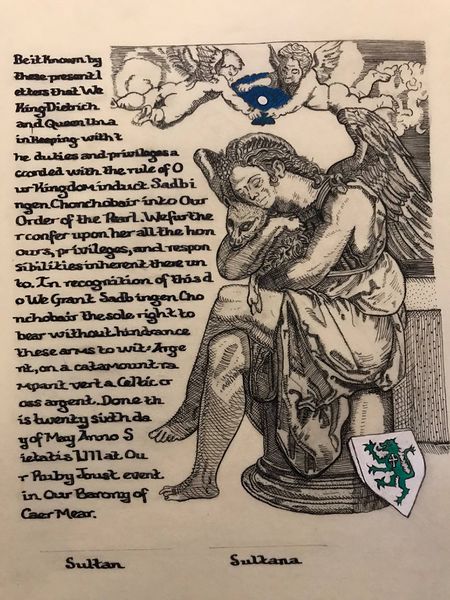 Be it Known by
these present l
etters that We
King Dietrich
and Queen Una
in keeping with t
he duties and privileges a
ccorded with the rule of O
ur Kingdom induct Sadb i
ngen Chonchobair into Our
Order of the Pearl. We furthe
r confer upon her all the hon
ours, privileges, and respon
sibilities inherent there un
to. In recognition of this d
o We Grant Sadb ingen Cho
nchobair the sole right to
bear without hindrance
these arms to wit: Arge
nt, on a catamount ra
mpant vert a Celtic cr
oss argent. Done th
is twenty sixth da
y of May Anno S
ocietatis LIII at Ou
r Ruby Joust event
in Our Barony of
Caer Mear.
Sultan
Sultana